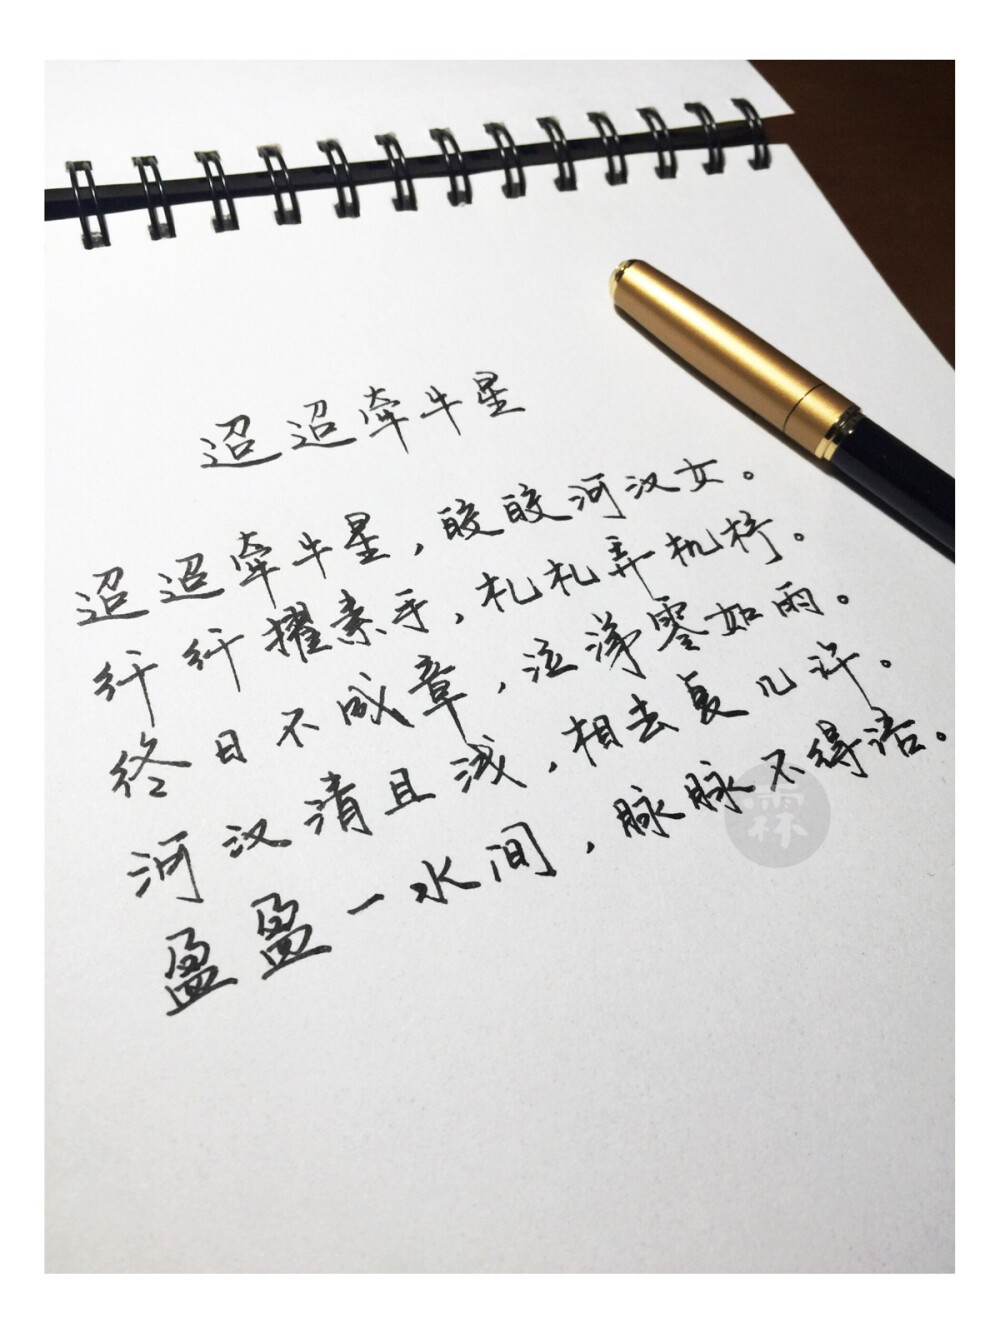 迢迢牵牛星
迢迢牵牛星，皎皎河汉女。
纤纤擢素手，札札弄机杼。
终日不成章，泣涕零如雨。
河汉清且浅，相去复几许。
盈盈一水间，脉脉不得语。
霖